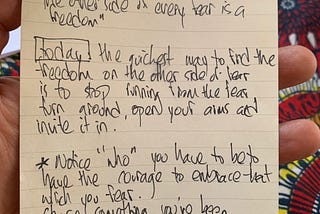 the other side of every fear is a
freedom"
Today the quickest way to find the
freedom on the other side of fear
is to stop running from the fear
turn around, open your arms and
invite it in.
* Notice "who" you have to be to
have the courage to embrace that
which you fear.
something you've been